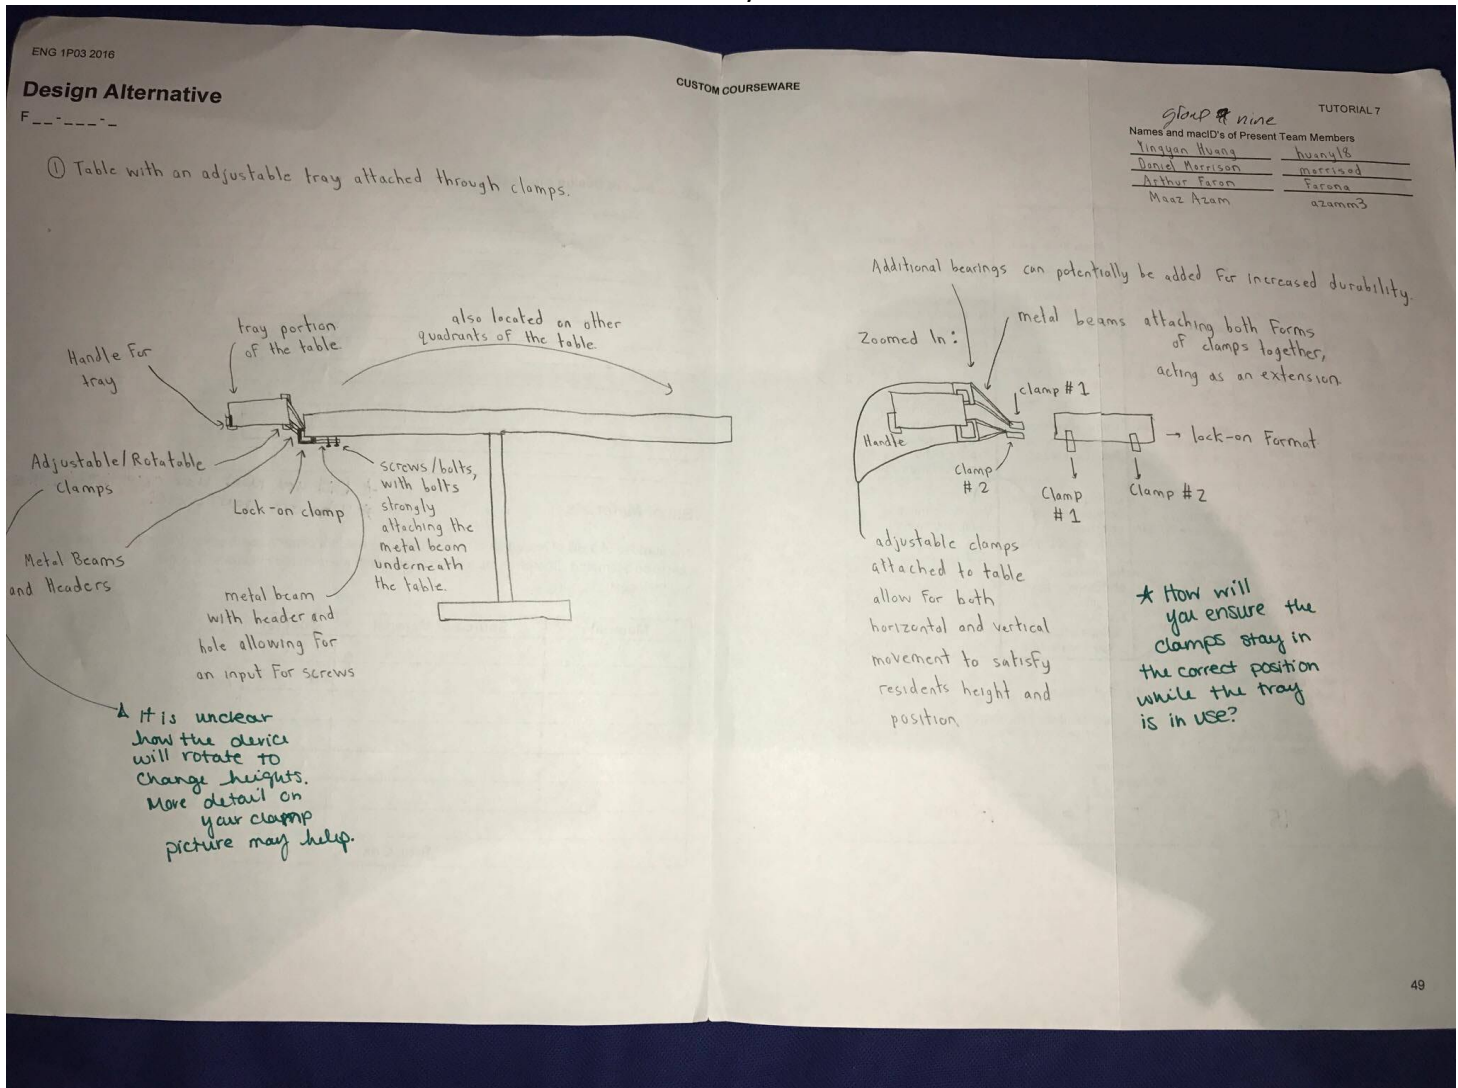 ENG 1P03 2016
CUSTOM COURSEWARE
TUTORIAL 7
Design Alternative
F__-___-_
group # nine
Names and macID's of Present Team Members
Yingyan Huang huany18
Daniel Morrison morrisod
Arthur Faron Farona
Maaz Azam azamm3
① Table with an adjustable tray attached through clamps.
Handle For
tray
tray portion
of the table
also located on other
quadrants of the table.
Adjustable/Rotatable
Clamps
Lock-on clamp
screws/bolts,
with bolts
strongly
attaching the
metal beam
underneath
the table.
Metal Beams
and Headers
metal beam
with header and
hole allowing for
an input For screws
It is unclear
how the device
will rotate to
change heights.
More detail on
your clamp
picture may help.
Additional bearings can potentially be added For increased durability.
Zoomed In:
metal beams attaching both Forms
of clamps together,
acting as an extension.
clamp #1
Handle
Clamp
#2
→ lock-on Format
Clamp
#1
Clamp #2
adjustable clamps
attached to table
allow For both
horizontal and vertical
movement to satisfy
residents height and
position.
★ How will
you ensure the
clamps stay in
the correct position
while the tray
is in use?
49